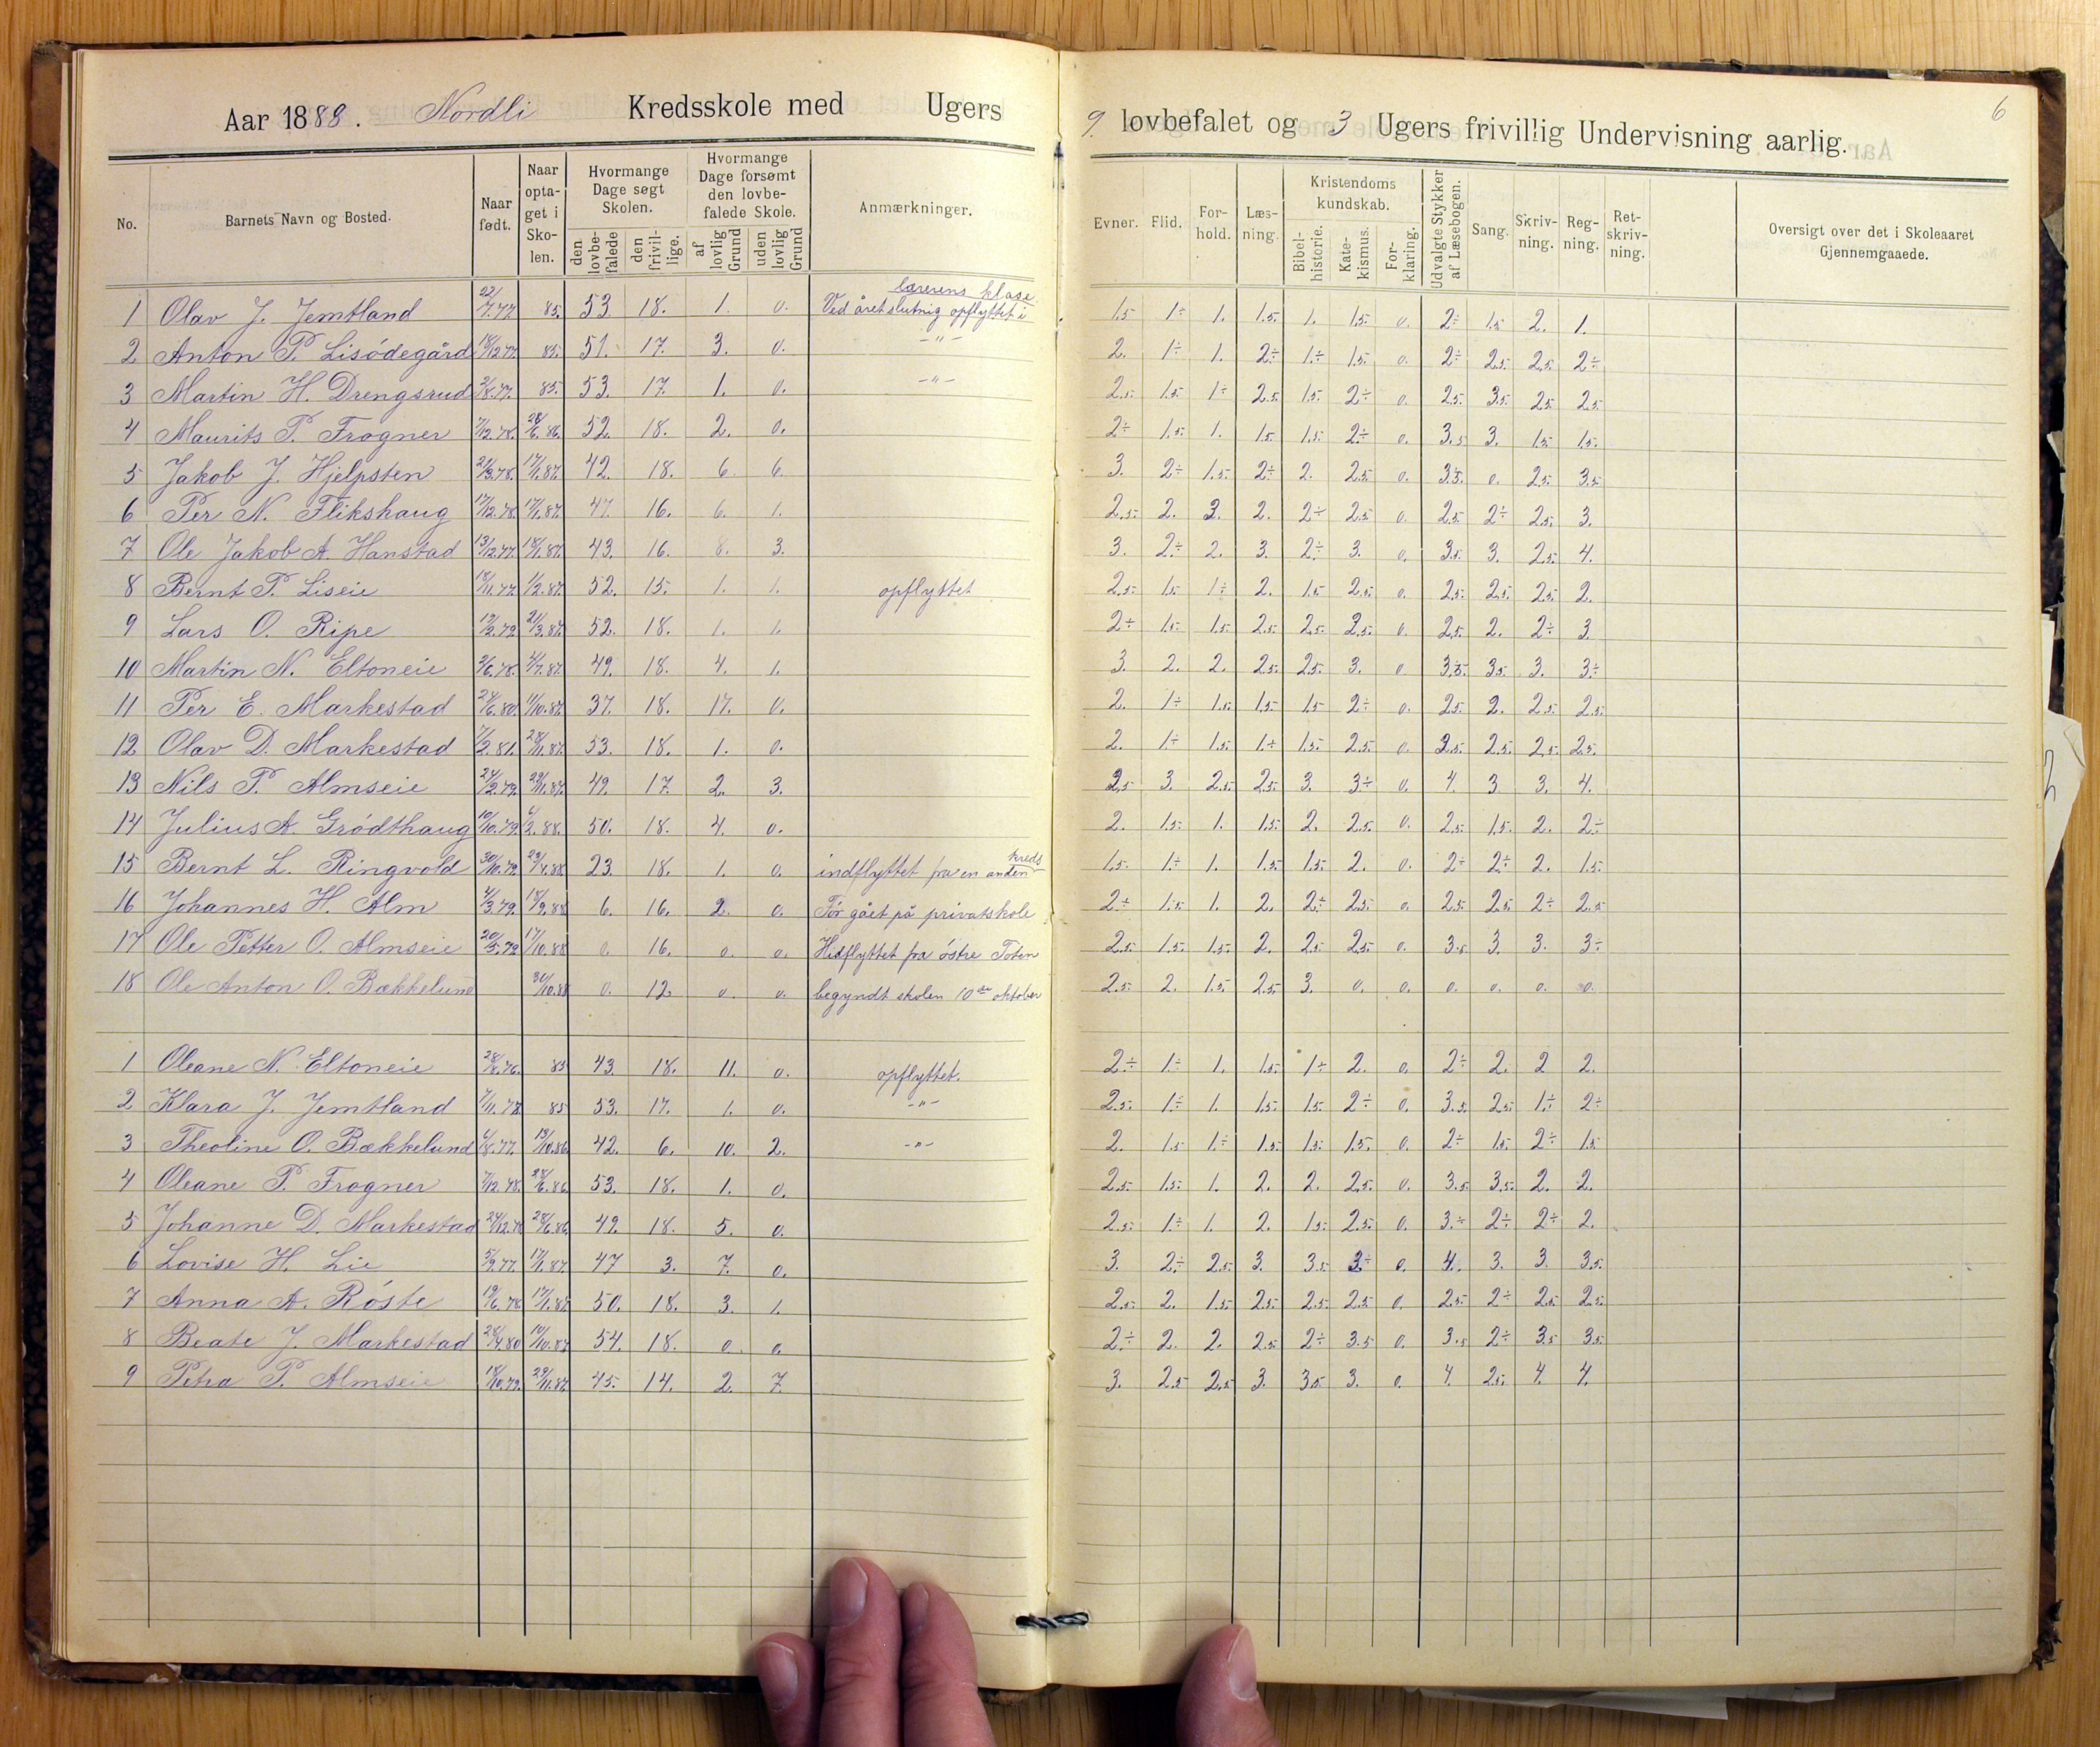 Aar 1888. Nordli Kredsskole med Ugers
No. Barnets Navn og Bosted. Naar født. Naar optaget i Skolen. Hvormange Dage søgt Skolen. den lovbefalede den frivillige. Hvormange Dage forsømt den lovbefalede Skole. af lovlig Grund uden lovlig Grund Anmærkninger.
1 Olav J. Jemtland 22/7.77. 85. 53. 18. 1. 0. Ved året slutnig opflyttet i lærerens klase.
2 Anton P. Lisödegård 18/12.77. 85. 51. 17. 3. 0. -"-
3 Martin H. Drengsrud 2/8.77. 85. 53. 17. 1. 0. -"-
4 Maurits P. Frogner 7/12.78. 28/6.86. 52. 18. 2. 0.
5 Jakob J. Hjelpsten 21/3.78. 17/1.87. 42. 18. 6. 6.
6 Per N. Flikshaug 17/12.78. 17/1.87. 47. 16. 6. 1.
7 Ole Jakob A. Hanstad 13/12.77. 18/1.87. 43. 16. 8. 3.
8 Bernt P. Liseie 18/11.77. 1/2.87. 52. 15. 1. 1. opflyttet
9 Lars O. Ripe 19/2.79. 21/3.87. 52. 18. 1. 1.
10 Martin N. Eltoneie 2/6.78. 4/7.87. 49. 18. 4. 1.
11 Per E. Markestad 27/6.80. 11/10.87. 37. 18. 17. 0.
12 Olav D. Markestad 7/2.81. 28/11.87. 53. 18. 1. 0.
13 Nils P. Almseie 27/2.79. 29/11.87. 49. 17 2. 3.
14 Julius A. Grödthaug 10/10.79. 6/2.88. 50. 18. 4. 0.
15 Bernt L. Ringvold 30/10.79. 23/4.88. 23. 18. 1. 0. indflyttet fra en anden kreds
16 Johannes H. Alm 4/3.79. 18/9.88. 6. 16. 2. 0. För gået på privatskole
17 Ole Petter O. Almseie 20/5.79. 17/10.88 0. 16. 0. 0. Hidflyttet fra östre Toten
18 Ole Anton O. Bækkelund 30/10.88 0. 12. 0. 0. begyndt skolen 10de oktober
1 Oleane N. Eltoneie 28/8.76. 83 43. 18. 11. 0. opflyttet.
2 Klara J. Jemtland 7/11.78. 85 53. 17. 1. 0. -"-
3 Theoline O. Bækkelund 6/8.77. 13/10.86. 42. 6. 10. 2. -"-
4 Oleane P. Frogner 7/12.78. 28/6.86. 53. 18. 1. 0.
5 Johanne D. Markestad 24/12.78 28/6.86. 49. 18. 5. 0.
6 Lovise H. Lie 5/9.77. 17/1.87. 47 3. 7. 0.
7 Anna A. Röste 19/6.78. 17/1.87. 50. 18. 3. 1.
8 Beate J. Markestad 28/4.80 10/10.87 54. 18. 0. 0.
9 Petra P. Almseie 18/10.79. 29/11.87. 45. 14. 2. 7.
6
9. lovbefalet og 3 Ugers frivillig Undervisning aarlig.
Evner. Flid. Forhold. Læsning. Kristendomskundskab. Bibelhistorie. Katekismus. Forklaring. Udvalgte Stykker af Læsebogen. Sang. Skrivning. Regning. Retskrivning. Oversigt over det i Skoleaaret Gjennemgaaede.
1.5 1÷ 1. 1.5. 1. 1.5. 0. 2÷ 1.5 2. 1.
2. 1÷ 1. 2÷ 1÷ 1.5. 0. 2÷ 2.5. 2.5. 2÷
2.5. 1.5. 1÷ 2.5. 1.5. 2÷ 0. 2.5. 3.5. 2.5. 2.5.
2÷ 1.5. 1. 1.5. 1.5. 2÷ 0. 3.5 3. 1.5. 1.5.
3. 2÷ 1.5. 2÷ 2. 2.5. 0. 3.5. 0. 2.5. 3.5
2.5. 2. 2. 2. 2÷ 2.5. 0. 2.5. 2÷ 2.5. 3.
3. 2÷ 2. 3. 2÷ 3. 0. 3.5. 3. 2.5. 4.
2.5. 1.5. 1÷ 2. 1.5 2.5. 0. 2.5. 2.5. 2.5. 2.
2÷ 1.5. 1.5. 2.5. 2.5. 2.5. 0. 2.5. 2. 2÷ 3.
3. 2. 2. 2.5. 2.5. 3. 0. 3.5. 3.5. 3. 3÷
2. 1÷ 1.5. 1.5. 1.5 2÷ 0. 2.5. 2. 2.5. 2.5.
2. 1÷ 1.5. 1÷ 1.5. 2.5. 0. 2.5. 2.5. 2.5. 2.5.
2.5 3. 2.5. 2.5. 3. 3÷ 0. 4. 3 3. 4.
2. 1.5. 1. 1.5. 2. 2.5. 0. 2.5. 1.5. 2. 2÷
1.5. 1÷ 1. 1.5. 1.5. 2. 0. 2÷ 2÷ 2. 1.5.
2÷ 1.5. 1. 2. 2÷ 2.5. 0. 2.5. 2.5. 2÷ 2.5
2.5. 1.5. 1.5. 2. 2.5. 2.5. 0. 3.5. 3. 3. 3÷
2.5. 2. 1.5. 2.5. 3. 0. 0. 0. 0. 0. 0.
2÷ 1÷ 1. 1.5. 1÷ 2. 0. 2÷ 2. 2 2.
2.5. 1÷ 1. 1.5. 1.5. 2÷ 0. 3.5. 2.5. 1÷ 2÷
2. 1.5 1÷ 1.5. 1.5. 1.5. 0. 2÷ 1.5. 2÷ 1.5
2.5. 1.5. 1. 2. 2. 2.5. 0. 3.5. 3.5. 2. 2.
2.5. 1÷ 1. 2. 1.5. 2.5. 0. 3÷ 2÷ 2÷ 2.
3. 2÷ 2.5. 3. 3.5 3÷ 0. 4. 3. 3. 3.5.
2.5. 2. 1.5. 2.5. 2.5. 2.5. 0. 2.5. 2÷ 2.5. 2.5.
2÷ 2. 2. 2.5. 2÷ 3.5 0. 3.5 2÷ 3.5 3.5.
3. 2.5 2.5. 3. 3.5. 3. 0. 4. 2.5. 4. 4.